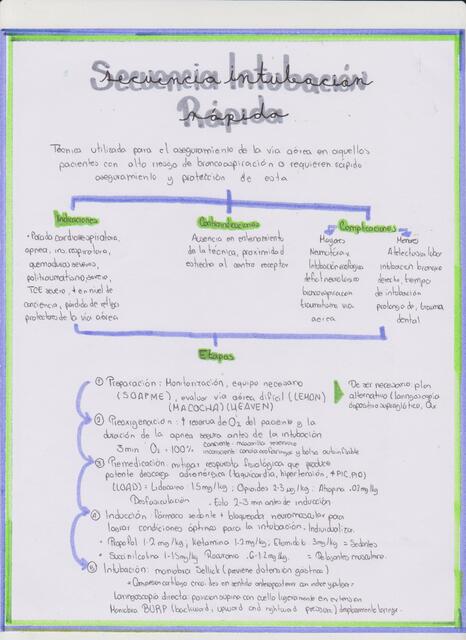 Secuencia Intubación
Rápida
secuencia intubación
rápida
Técnica utilizada para el aseguramiento de la vía aérea en aquellos
pacientes con alto riesgo de broncoaspiración o requieren rápido
aseguramiento y protección de esta
Indicaciones
• Paro cardiorespiratorio,
apnea, ins. respiratoria,
quemaduras severas,
politraumatismo severo,
TCE severo, ↓ en nivel de
conciencia, pérdida de reflejos
protectores de la vía aérea
Contraindicaciones
Ausencia en entrenamiento
de la técnica, proximidad
estrecha al centro receptor
Complicaciones
Mayores
Neumotórax
Intubación esofágica
déficit neurológico
broncoaspiración
traumatismo vía
aérea
Menores
Atelectasia lobar
intubación bronquio
derecho, tiempo
de intubación
prolongado, trauma
dental
Etapas
① Preparación: Monitorización, equipo necesario
(SOAPME), evaluar vía aérea difícil (LEMON)
(MACOCHA) (HEAVEN)
De ser necesario: plan
alternativo (laringoscopia
dispositivo supraglótico, Qx
② Preoxigenación: ↑ reserva de O2 del paciente y la
duración de la apnea segura antes de la intubación
3 min O2 = 100% consciente: mascarilla reservorio
inconsciente: cánula orofaríngea y bolsa autoinflable
③ Premedicación: mitigar respuesta fisiológica que produce
potente descarga adrenérgica (taquicardia, hipertensión, ↑PIC, PIO)
(LOAD) = Lidocaína 1.5 mg/kg; Opioides 2-3 µg/kg; Atropina .02 mg/kg
Desfasciculación . Esto 2-3 min antes de inducción
④ Inducción: Fármaco sedante + bloqueador neuromuscular para
lograr condiciones óptimas para la intubación. Individualizar.
• Propofol 1-2 mg/kg, Ketamina 1-2 mg/kg; Etomidato 3mg/kg = Sedantes
• Succinilcolina 1-1.5 mg/kg Rocuronio .6-1.2 mg/kg. = Relajantes musculares.
⑤ Intubación: maniobra Sellick (previene distensión gástrica)
• Compresión cartílago cricoides en sentido anteroposterior con índice y pulgar
Laringoscopia directa: posición supino con cuello ligeramente en extensión
Maniobra BURP (backward, upward and rightward pressure) desplazamiento laringe.